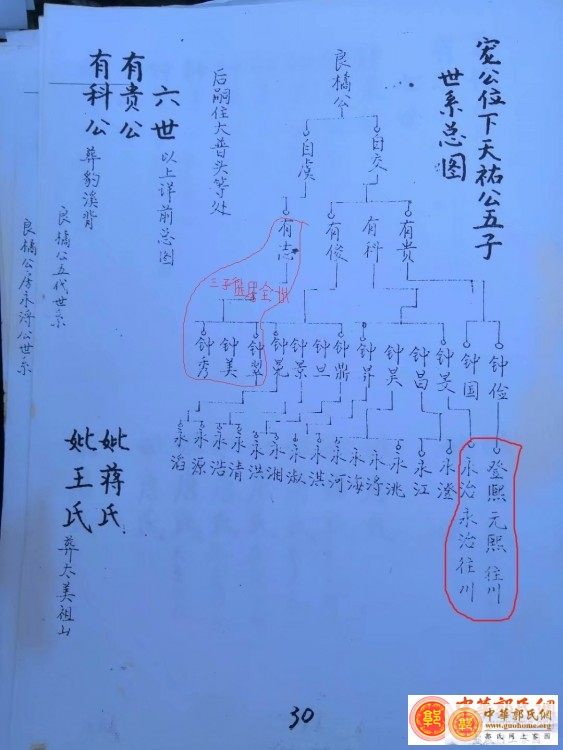 宠公位下天祐公五子
世系总图
良橘公
自交
自虞
有贵
有科
有俊
有志
三子
钟俭
钟国
钟旻
钟昌
钟昊
钟昇
钟鼎
钟旦
钟景
钟晃
钟翠
钟美
钟秀
登熙元熙往川
永治永治往川
永澄
永江
永洮
永浔
永海
永河
永洪
永淑
永湘
永洪
永清
永浩
永源
永滔
后嗣住大普头等处
六世以上详前总图
有贵公
妣蒋氏
有科公葬豹溪背
妣王氏葬太美祖山
良橘公五代世系
良橘公房永浔公世系
30
中華郭氏網
www.guohome.org
郭氏网上家园